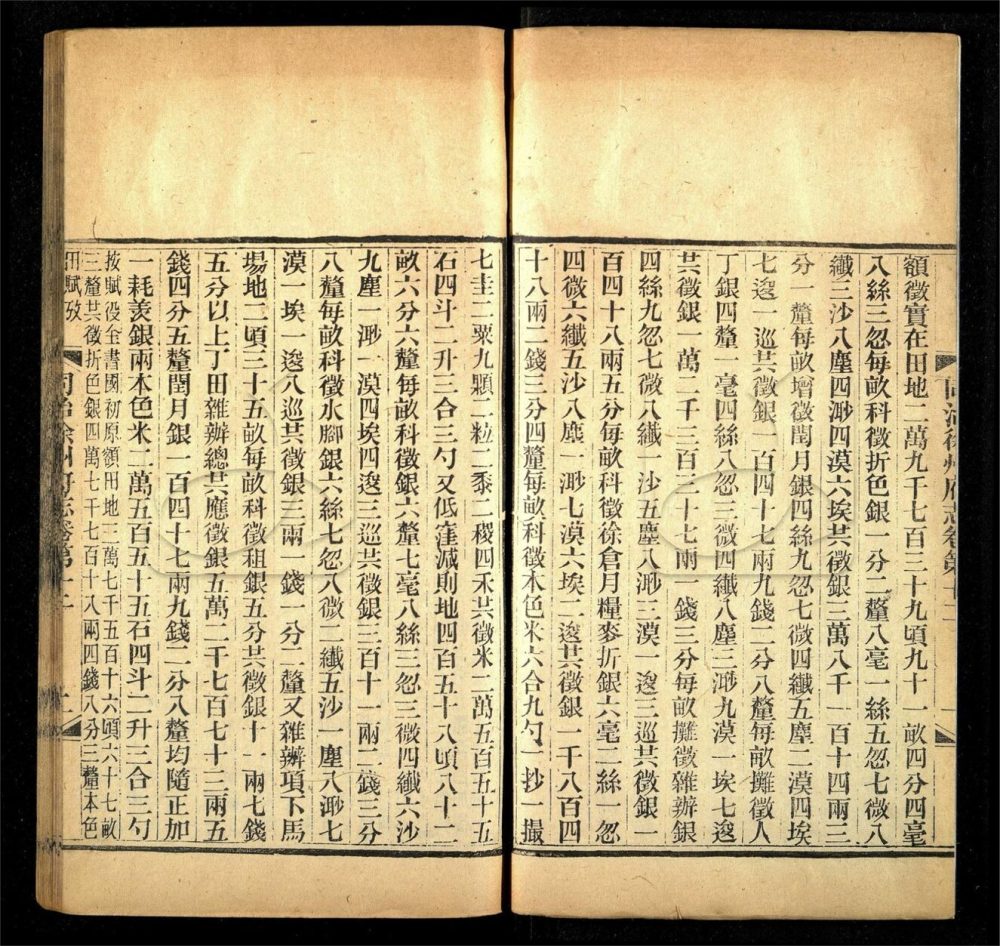 額徵實在田地二萬九千七百三十九頃九十一畝四分四毫
八絲三忽每畝科徵折色銀一分二釐八毫一絲五忽七微八
纖三沙八塵四渺四漠六埃共徵銀三萬八千一百十四兩三
分一釐每畝增徵閏月銀四絲九忽七微四纖五塵二漠四埃
七逡一巡共徵銀一百四十七兩九錢二分八釐每畝攤徵人
丁銀四釐一毫四絲八忽三微四纖八塵三渺九漠一埃七逡
共徵銀一萬二千三百三十七兩一錢三分每畝攤徵雜辦銀
四絲九忽七微八纖一沙五塵八渺三漠一逡三巡共徵銀一
百四十八兩五分每畝科徵徐倉月糧麥折銀六毫二絲一忽
四微六纖五沙八塵一渺七漠六埃二逡共徵銀一千八百四
十八兩二錢三分四釐每畝科徵本色米六合九勺一抄一撮
七圭二粟九顆二粒二黍二稷四禾共徵米二萬五百五十五
石四斗二升三合三勺又低窪減則地四百五十八頃八十二
畝六分六釐每畝科徵銀六釐七毫八絲三忽三微四纖六沙
九塵一渺一漠四埃四逡三巡共徵銀三百十一兩二錢三分
八釐每畝科徵水腳銀六絲七忽八微一纖五沙一塵八渺七
漠一埃一逡八巡共徵銀三兩一錢一分二釐又雜辦項下馬
場地二頃三十五畝每畝科徵租銀五分共徵銀十一兩七錢
五分以上丁田雜辦總共應徵銀五萬二千七百七十三兩五
錢四分五釐閏月銀一百四十七兩九錢二分八釐均隨正加
一耗羨銀兩本色米二萬五百五十五石四斗二升三合三勺
按賦役全書國初原額田地三萬七千五百十六頃六十七畝
三釐共徵折色銀四萬七千七百十八兩四錢八分三釐本色
田賦攷
同治徐州府志卷第十二